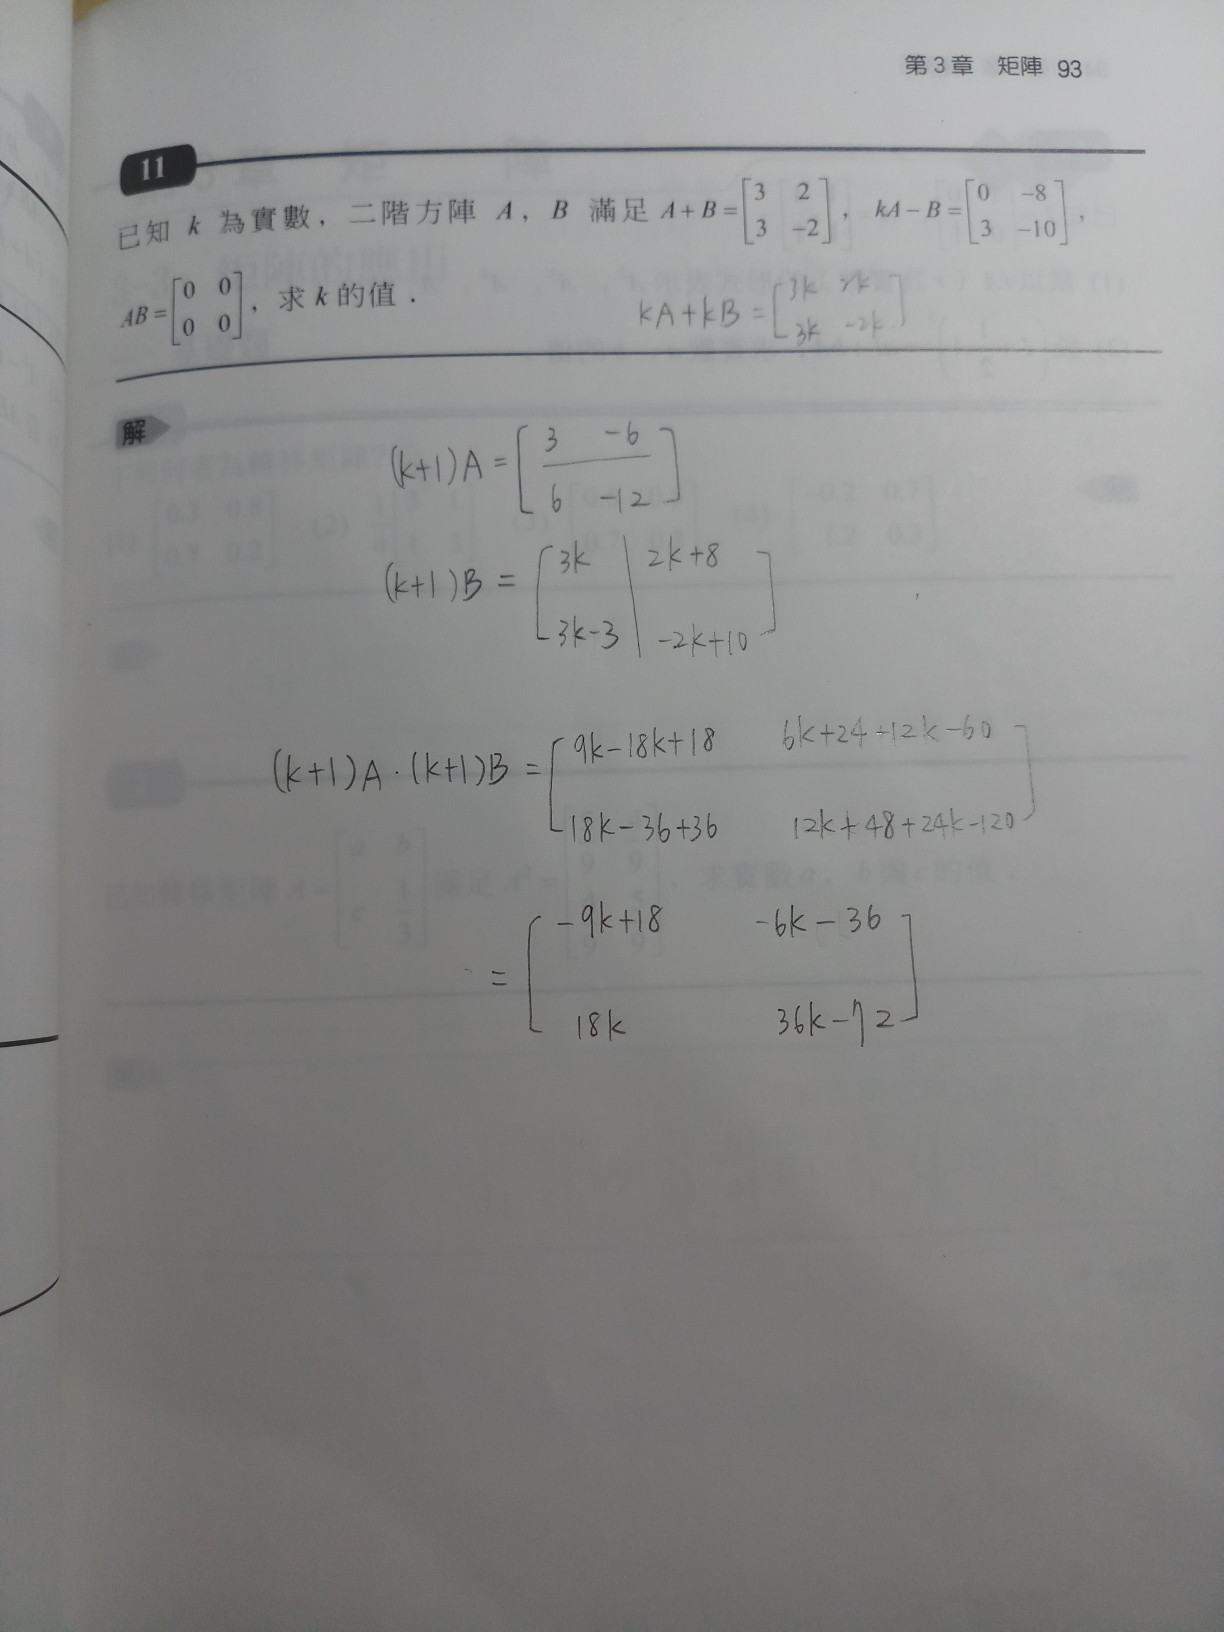 第3章 矩陣 93
11
已知 k 為實數，二階方陣 A，B 滿足 A+B=[3 2; 3 -2]，kA-B=[0 -8; 3 -10]，
AB=[0 0; 0 0]，求 k 的值．
kA+kB=[3k 2k; 3k -2k]
解
(k+1)A=[3 -6; 6 -12]
(k+1)B=[3k 2k+8; 3k-3 -2k+10]
(k+1)A·(k+1)B=[9k-18k+18 6k+24+12k-60; 18k-36+36 12k+48+24k-120]
=[-9k+18 -6k-36; 18k 36k-72]